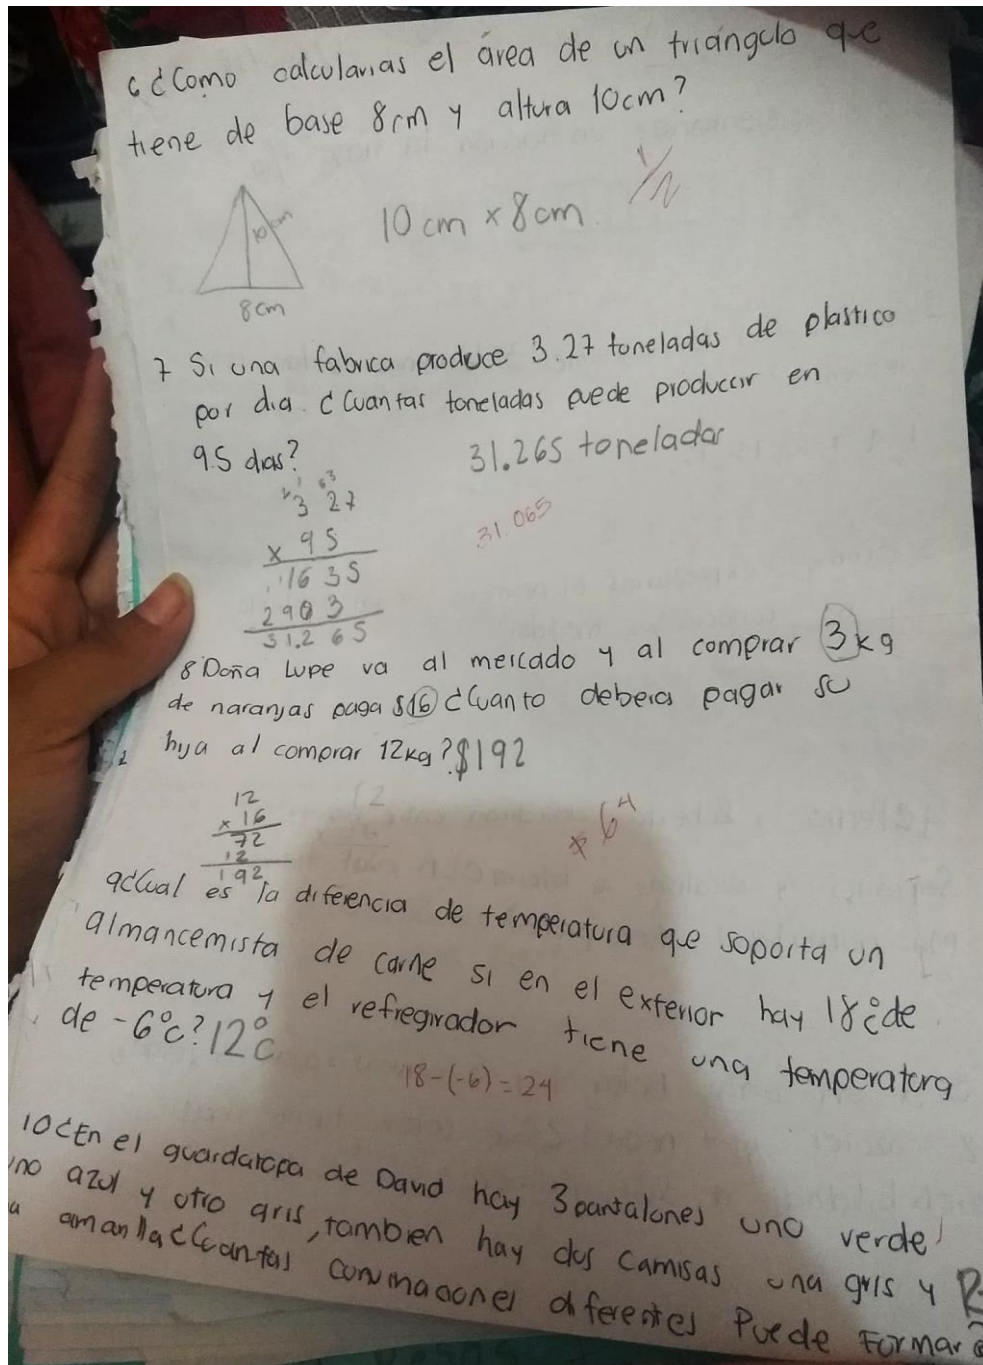 6 ¿Como calcularias el área de un triángulo que
tiene de base 8cm y altura 10cm?
10 cm
10 cm x 8cm
1/2
8cm
7 Si una fabrica produce 3.27 toneladas de plastico
por dia. ¿Cuantas toneladas puede produccir en
9.5 dias?
31.265 toneladas
2 1 6 3
3 27
x 95
1635
2903
31.265
31.065
8 Doña Lupe va al mercado y al comprar 3kg
de naranjas paga $16 ¿Cuanto deberá pagar su
hija al comprar 12kg? $192
12
x 16
72
12
192
64
9¿Cual es la diferencia de temperatura que soporta un
almancemista de carne si en el exterior hay 18°c de
temperatura y el refregirador tiene una temperatura
de -6°c? 12°c
18-(-6)=24
10¿En el guardaropa de David hay 3 pantalones uno verde
uno azul y otro gris, tambien hay dos camisas una gris y
a amarilla ¿Cuantas convinaciones diferentes Puede Formar